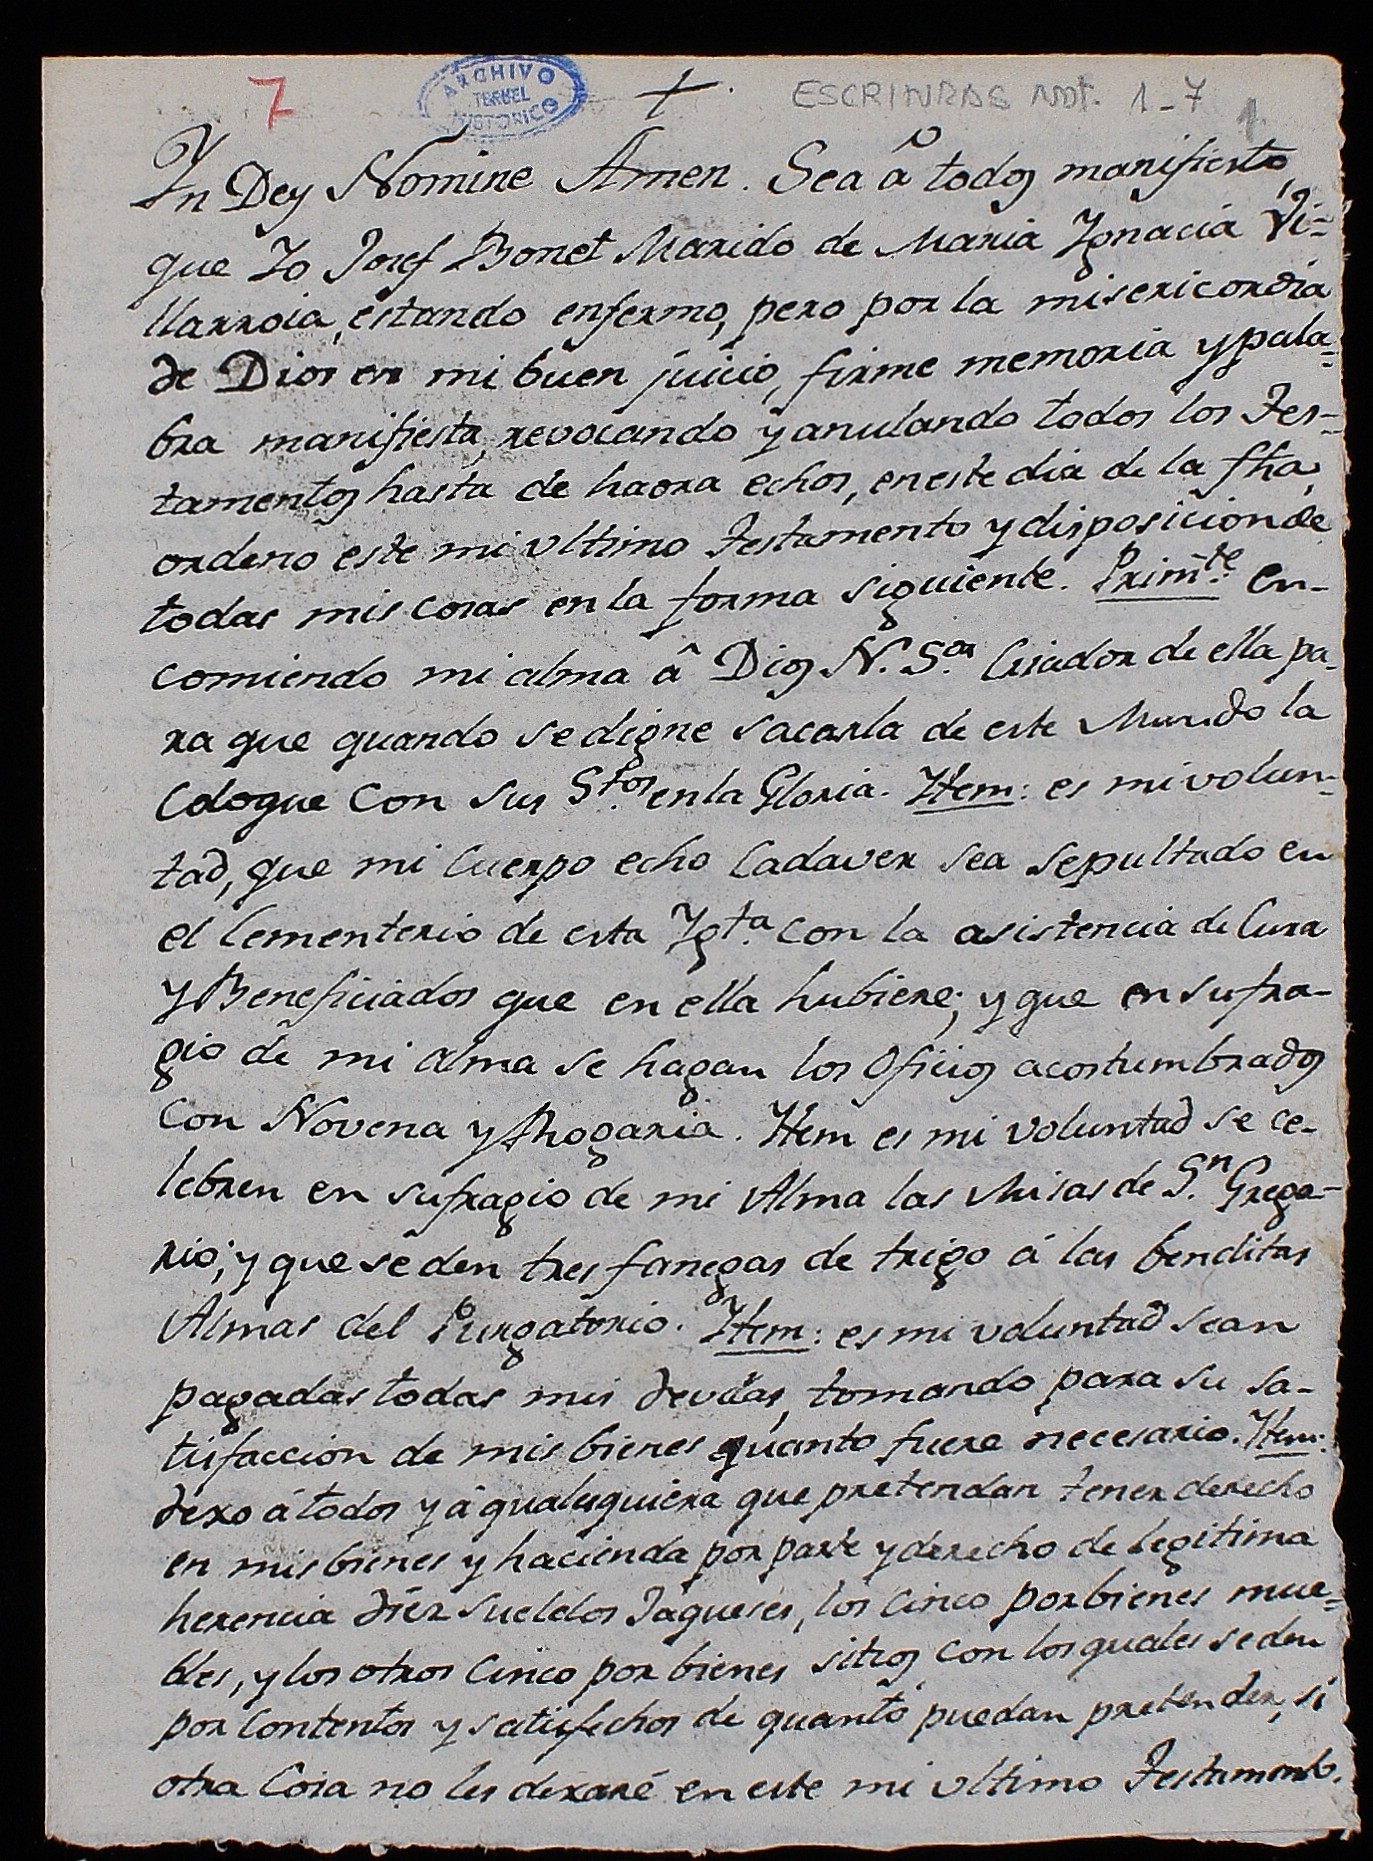 7
ARCHIVO
TERUEL
HISTORICO
+
ESCRITURAS NOT. 1-7
1
Yn Dey Nomine Amen. Sea â todos manifiesto,
que Yo Josef Bonet Marido de Maria Ygnacia Vi-
llarroia, estando enfermo, pero por la misericordia
de Dios en mi buen juicio, firme memoria y pala-
bra manifiesta, revocando y anulando todos los Tes-
tamentos hasta de haora echos, en este dia de la fha,
ordeno este mi ultimo Testamento y disposicion de
todas mis cosas en la forma siguiente. Primte. en-
comiendo mi alma â Dios N. Sor. Criador de ella pa-
ra que quando se digne sacarla de este Mundo la
Coloque con sus Stos. en la Gloria. Item: es mi volun-
tad, que mi Cuerpo echo Cadaver sea sepultado en
el Cementerio de esta Ygta. con la asistencia de Cura
y Beneficiados que en ella hubiere; y que en sufra-
gio de mi alma se hagan los Oficios acostumbrados
con Novena y Rogaria. Item es mi voluntad se ce-
lebren en sufragio de mi Alma las Misas de Sn. Grego-
rio; y que se den tres fanegas de trigo á las benditas
Almas del Purgatorio. Item: es mi voluntad sean
pagadas todas mis devdas, tomando para su sa-
tisfaccion de mis bienes quanto fuere necesario. Item:
dexo á todos y á qualesquiera que pretendan tener derecho
en mis bienes y hacienda por parte y derecho de legitima
herencia diez sueldos Jaqueses, los cinco por bienes mue-
bles, y los otros cinco por bienes sitios con los quales se den
por contentos y satisfechos de quanto puedan pretender, si
otra Cosa no les dexaré en este mi ultimo Testamento.